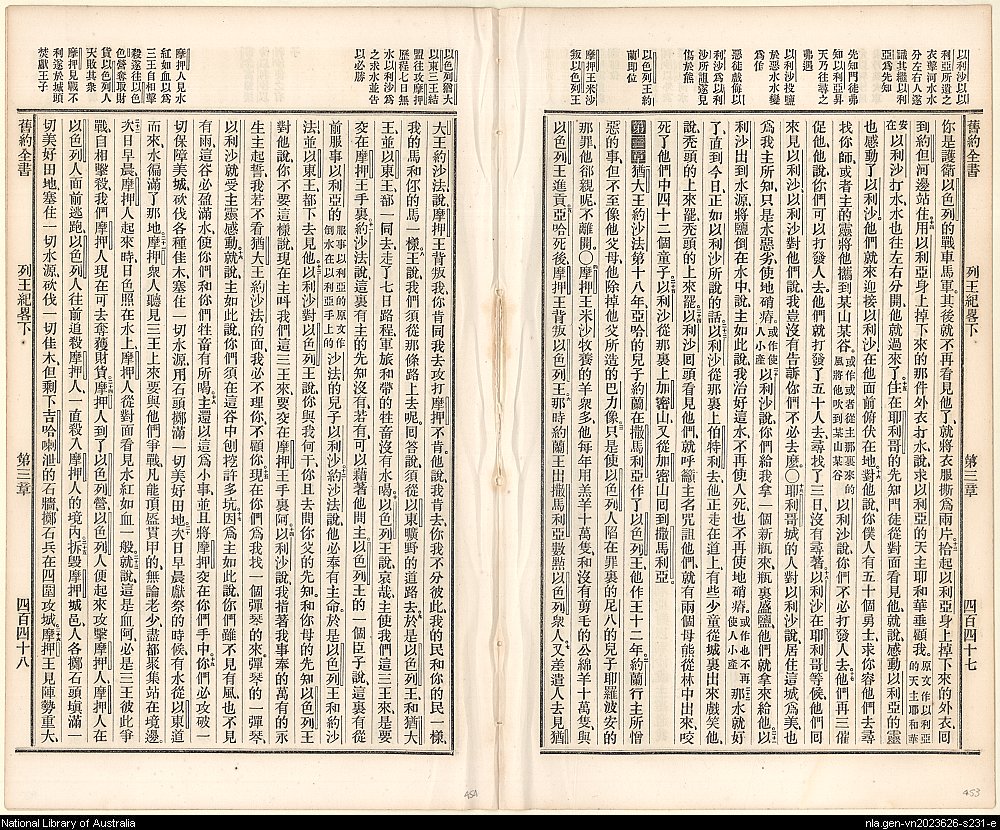 以利沙以以
利亞所遺之
衣擊河水水
分左右人遂
識其繼以利
亞爲先知
先知門徒弗
知以利亞昇
天乃往尋之
弗遇
以利沙投鹽
於惡水水變
爲佳
惡徒戲侮以
利沙爲以利
沙所詛遂見
傷於熊
以色列王約
蘭卽位
摩押王米沙
叛以色列王
舊約全書 列王紀畧下 第二章 四百四十七
你是護衛以色列的戰車馬軍其後就不再看見他了就將衣服撕爲兩片拾起以利亞身上掉下來的外衣囘
到約但河邊站住用以利亞身上掉下來的那件外衣打水說求以利亞的天主耶和華垂顧我原文作以利亞的天主耶和華
安在以利沙打水水也往左右分開他就過來了住在耶利哥的先知門徒從對面看見他就說感動以利亞的靈
也感動了以利沙他們就來迎接以利沙在他面前俯伏在地對他說你僕人有五十個勇士求你容他們去尋
找你師或者主的靈將他攜到某山某谷或作或者從主那裏來的風將他吹到某山某谷以利沙說你們不必打發人去他們再三催
促他他說你們可以打發人去他們就打發了五十人去尋找了三日沒有尋著以利沙在耶利哥等候他們囘
來見以利沙以利沙對他們說我豈沒有告訴你們不必去麽〇耶利哥城的人對以利沙說居住這城爲美也
爲我主所知只是水惡劣使地磽瘠或作使人小產以利沙說你們給我拿一個新瓶來瓶裏盛鹽他們就拿來給他以
利沙出到水源將鹽倒在水中說主如此說我治好這水不再使人死也不再使地磽瘠或作也不再使人小產那水就好
了直到今日正如以利沙所說的話以利沙從那裏上伯特利去他正走在道上有些少童從城裏出來戲笑他
說禿頭的上來罷禿頭的上來罷以利沙囘頭看見他們就呼籲主名咒詛他們就有兩個母熊從林中出來咬
死了他們中四十二個童子以利沙從那裏上加密山又從加密山囘到撒馬利亞
第三章猶大王約沙法第十八年亞哈的兒子約蘭在撒馬利亞作了以色列王他作王十二年約蘭行主所憎
惡的事但不至像他父母他除掉他父所造的巴力像只是使以色列人陷在罪裏的尼八的兒子耶羅波安的
那罪他卻親昵不離開〇摩押王米沙牧養的羊衆多他每年用羔羊十萬隻和沒有剪毛的公綿羊十萬隻與
以色列王進貢亞哈死後摩押王背叛以色列王那時約蘭王出撒馬利亞數點以色列衆人又差遣人去見猶
以色列猶大
以東三王結
盟往攻摩押
歷程七日無
水以利沙爲
之求水並告
以必勝
摩押人見水
紅如血以爲
三王自相擊
殺遂往以色
色營奪取財
貨以色列人
天敗其衆
摩押見戰不
利遂於城頭
焚獻王子
大王約沙法說摩押王背叛我你肯同我去攻打摩押不肯他說我肯去你我不分彼此我的民和你的民一樣
我的馬和你的馬一樣王說我們須從那條路上去呢囘答說須從以東曠野的道路去於是以色列王和猶大
王並以東王都一同去走了七日路程軍旅和帶的牲畜沒有水喝以色列王說哀哉主使我們這三王來是要
交在摩押王手裏約沙法說這裏有主的先知沒有若有可以藉著他問主以色列王的一個臣子說這裏有從
前服事以利亞的服事以利亞的原文作倒水在以利亞手上的沙法的兒子以利沙約沙法說他必奉有主命於是以色列王和約沙
法並以東王都下去見他以利沙對以色列王說你與我何干你且去問你父的先知和你母的先知以色列王
對他說你不要這樣說現在主叫我們這三王來要交在摩押王手裏阿以利沙說我指著我事奉的萬有的永
生主起誓我若不看猶大王約沙法的面我必不理你不顧你現在你們爲我找一個彈琴的來彈琴的一彈琴
以利沙就受主靈感動就說主如此說你們須在這谷中刨挖許多坑因爲主如此說你們雖不見有風也不見
有雨這谷必盈滿水使你們和你們牲畜有所喝主還以這爲小事並且將摩押交在你們手中你們必攻破一
切保障美城砍伐各種佳木塞住一切水源用石頭擲滿一切美好田地次日早晨獻祭的時候有水從以東道
而來水徧滿了那地摩押衆人聽見三王上來要與他們爭戰凡能頂盔貫甲的無論老少盡都聚集站在境邊
次日早晨摩押人起來時日色照在水上摩押人從對面看見水紅如血一般就說這是血阿必是三王彼此爭
戰自相擊殺我們摩押人現在可去奪獲財貨摩押人到了以色列營以色列人便起來攻擊摩押人摩押人在
以色列人面前逃跑以色列人往前追殺摩押人一直殺入摩押人的境內拆毀摩押城邑人各擲石頭塡滿一
切美好田地塞住一切水源砍伐一切佳木但剩下吉哈喇泄的石牆擲石兵在四圍攻城摩押王見陣勢重大
舊約全書 列王紀畧下 第三章 四百四十八
454
453
National Library of Australia
nla.gen-vn2023626-s231-e